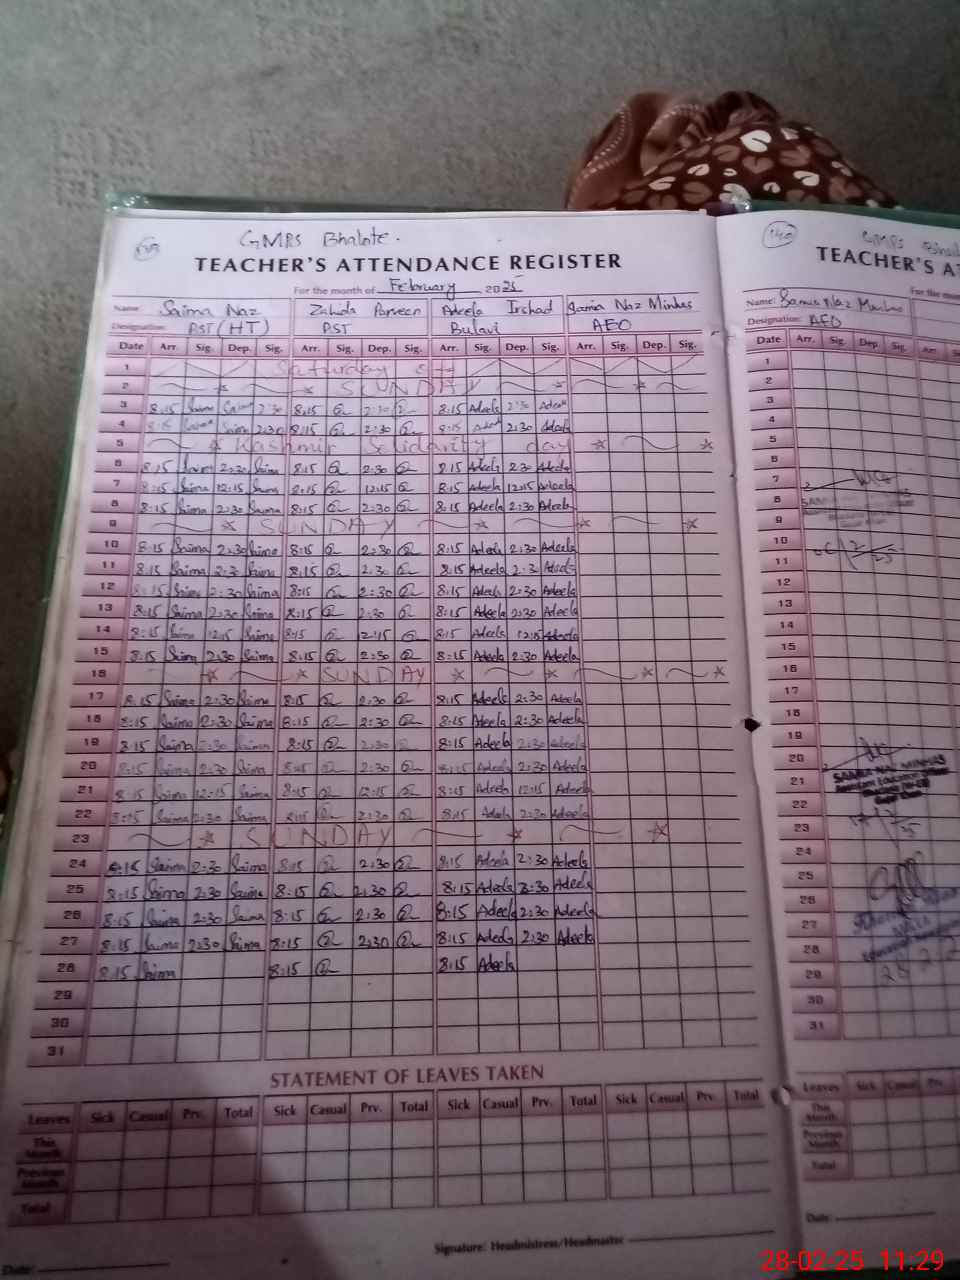 GMRS Bhalote.
TEACHER'S ATTENDANCE REGISTER
For the month of February 2025
Name: Saima Naz Zahida Parveen Adeela Irshad Samia Naz Minhas
Designation: PST (HT) PST AEO
Date Arr. Sig. Dep. Sig. Arr. Sig. Dep. Sig. Arr. Sig. Dep. Sig. Arr. Sig. Dep. Sig.
1 Saturday off
2 SUNDAY
3 8:15 Saima Saima 2:30 8:15 2:30 8:15 Adeela 2:30 Adeela
4 8:15 Saima Saima 2:30 8:15 2:30 8:15 Adeela 2:30 Adeela
5 Kashmir Solidarity day
6 8:15 Saima 2:30 Saima 8:15 2:30 8:15 Adeela 2:30 Adeela
7 8:15 Saima 12:15 Saima 8:15 12:15 8:15 Adeela 12:15 Adeela
8 8:15 Saima 2:30 Saima 8:15 2:30 8:15 Adeela 2:30 Adeela
9 SUNDAY
10 8:15 Saima 2:30 Saima 8:15 2:30 8:15 Adeela 2:30 Adeela
11 8:15 Saima 2:30 Saima 8:15 2:30 8:15 Adeela 2:30 Adeela
12 8:15 Saima 2:30 Saima 8:15 2:30 8:15 Adeela 2:30 Adeela
13 8:15 Saima 2:30 Saima 8:15 2:30 8:15 Adeela 2:30 Adeela
14 8:15 Saima 12:15 Saima 8:15 12:15 8:15 Adeela 12:15 Adeela
15 8:15 Saima 2:30 Saima 8:15 2:30 8:15 Adeela 2:30 Adeela
16 SUNDAY
17 8:15 Saima 2:30 Saima 8:15 2:30 8:15 Adeela 2:30 Adeela
18 8:15 Saima 2:30 Saima 8:15 2:30 8:15 Adeela 2:30 Adeela
19 8:15 Saima 2:30 Saima 8:15 2:30 8:15 Adeela 2:30 Adeela
20 8:15 Saima 2:30 Saima 8:15 2:30 8:15 Adeela 2:30 Adeela
21 8:15 Saima 12:15 Saima 8:15 12:15 8:15 Adeela 12:15 Adeela
22 8:15 Saima 2:30 Saima 8:15 2:30 8:15 Adeela 2:30 Adeela
23 SUNDAY
24 8:15 Saima 2:30 Saima 8:15 2:30 8:15 Adeela 2:30 Adeela
25 8:15 Saima 2:30 Saima 8:15 2:30 8:15 Adeela 2:30 Adeela
26 8:15 Saima 2:30 Saima 8:15 2:30 8:15 Adeela 2:30 Adeela
27 8:15 Saima 2:30 Saima 8:15 2:30 8:15 Adeela 2:30 Adeela
28 8:15 Saima 8:15 8:15 Adeela
29
30
31
STATEMENT OF LEAVES TAKEN
Leaves Sick Casual Prv. Total Sick Casual Prv. Total Sick Casual Prv. Total Sick Casual Prv. Total
This Month
Previous Month
Total
Signature: Headmistress/Headmaster
Date:
140
GMRS
TEACHER'S
For the
Name: Samia Naz Minhas
Designation: AEO
Date Arr. Sig. Dep. Sig. Arr
1
2
3
4
5
6
7
8
9
10
11
12
13
14
15
16
17
18
19
20
21 SAMIA NAZ MINHAS
22
23
24
25
26
27
28
29
30
31
Leaves Sick Casual Prv.
This Month
Previous Month
Total
Date:
28-02-25 11:29